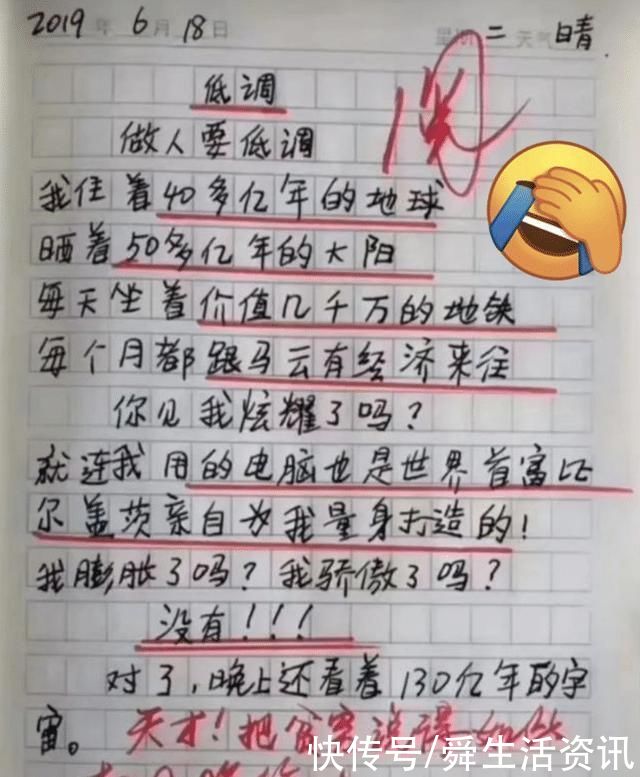 2019年 6月 18日 星期二 天气 晴.
低调
做人要低调
我住着40多亿年的地球
晒着50多亿年的大阳
每天坐着价值几千万的地铁
每个月都跟马云有经济来往
你见我炫耀了吗？
就连我用的电脑也是世界首富比
尔盖茨亲自为我量身打造的！
我膨胀了吗？我骄傲了吗？
没有！！！
对了，晚上还看着130亿年的宇
宙。天才！把
快传号/舜生活资讯